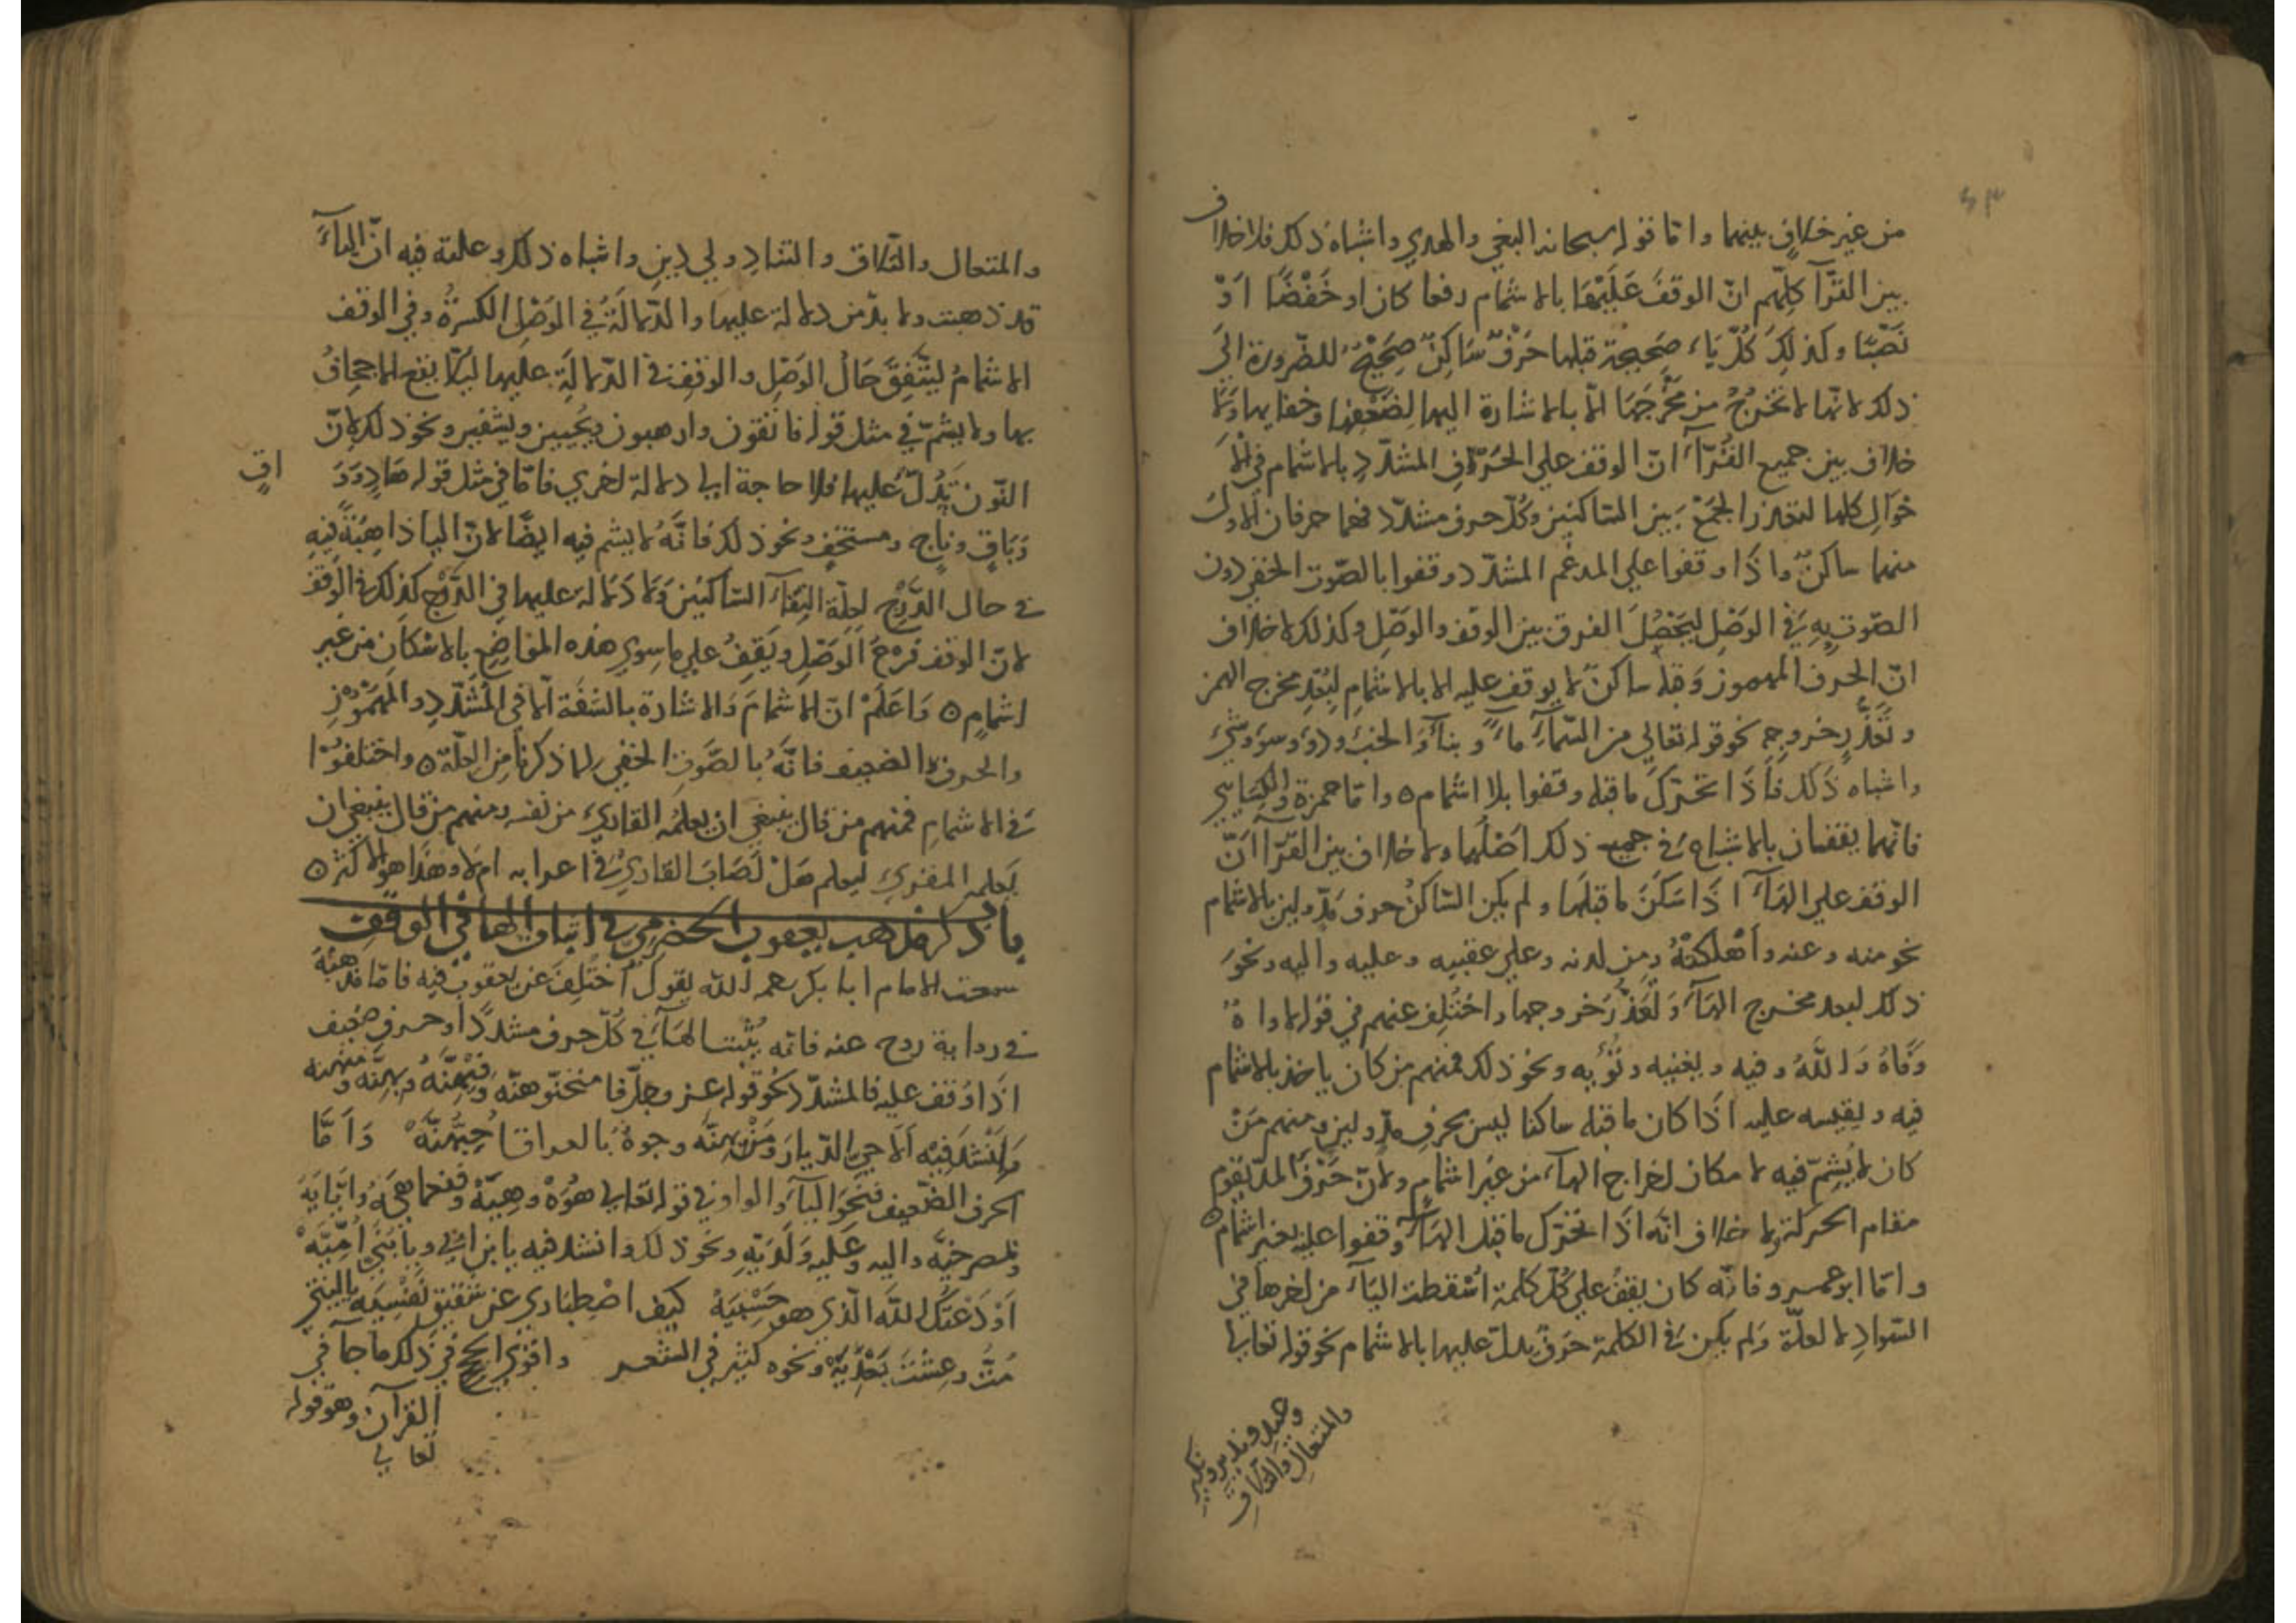 من غير خلافٍ بينهما واما قوله سبحانه البغي والهدي واشباه ذلك فلا خلاف
بين القرّآ كلِّهم انّ الوقفَ عَلَيْهَا بالاشمام رفعا كان او خَفْضًا اوْ
نَصْبًا وكذلكَ كُلّ يَاءٍ صَحِيحة قبلها حَرْفٌ سَاكِنٌ صَحِيحٌ للضّرورة الىَ
ذلك لانّها لا تخرُجُ من مَخْرَجِهَا الّا بالاشارة اليها لِضَعْفِها وخفايها ولَا
خلاف بين جميع القُرّآءِ انّ الوقف على الحَرفِ المشدّدِ بالاشمام في الا
حْوَالِ كلها لتعذر الجَمْع بين السّاكنين وكُلّ حرف مشدّد فهما حرفان الاولُ
منهما ساكنٌ واذَا وقفوا علي المدغم المشدّد وقفوا بالصّوت الخفي دون
الصّوت بِهِ في الوَصْلِ ليَحْصُلَ الفرق بين الوقف والوصْلِ وكذلك لا خلاف
انّ الحرفَ المهموز وَقبله ساكنٌ لا يوقف عليه الا بالاشمامِ لِبُعْدِ مخرج الهمز
وتَعَذُّرِ خروجِهِ نحو قوله تعالي من السّمآءِ مآءً وبنآءً والخبْءَ ودفء وسوء وشَيْءٍ
واشباه ذلك فاذَا تحَرّكَ ما قبله وقفوا بلا اشمام ٥ واما حمزة والكِسَايي
فانّهما يقفان بالاشباع في جميع ذلك اصْلُهما ولا خلاف بين القرّآ انّ
الوقف على الهآءِ اذَا سَكَنَ ما قبلَها ولم يكن السّاكنُ حرفَ مدّ ولين بالاشمام
نحو منه وعنه واَهْلكَتْهُ ومِن لدنه وعلى عقبيه وعليه واليه ونحوَ
ذلك لبعد مخرج الهآءِ وتَعَذُّر خروجها واختُلِف عنهم في قوله لاداهُ
وَفَاهُ وَاللهُ وفيه ويغنيه ونُؤيه ونحو ذلك فمنهم من كان ياخذ بالاشمام
فيه ويقيسه عليه اذَا كان ما قبله ساكنا ليس بحرفِ مدّ ولين ومنهم مَنْ
كان لا يُشِمّ فيه لامكان اخراج الهآءِ من غيرِ اشمامٍ ولانّ حَرْفَ المدّ يقوم
مقام الحركة ولا خلاف انّه اذَا تحرّك ما قبل الهَآءِ وقفوا عليه بغير اشمامٍ ٥
واما ابو عمرو فانّه كان يقفُ على كُلّ كلمةٍ اُسْقطت اليَآءُ من اخرها في
السّوادِ لا لعلّة وَلم يكن في الكلمة حَرفٌ يدلّ عليها بالاشمام نحو قوله تعالى
وعيد ونذير ونكير
والمتعالِ والتلاقِ
والمتعال والتّلاق والتنادِ ولي دينِ واشباه ذلك وعلته فيه انّ اليآءَ
قد ذهبت ولا بدّ من دلالة عليها والدّلالَةُ في الوَصْلِ الكسرَةُ وفي الوقف
الاشمامُ ليتّفِقَ حَالُ الوَصْلِ والوقفِ في الدّلالَةِ عليها ليَلّا يقع الاجحافُ
بها ولا يشمّ في مثل قوله فاتقون وارهبون ويُحْيين ويشفين ونحو ذلك لانّ
النّون تَدُلّ عَليها فلا حاجة الى دلالة اخري فامّا في مثل قوله هَادٍ وَوَ
اقٍ
وَبَاقٍ ونَاجٍ ومستخفٍ ونحو ذلك فانَّهُ لا يشم فيه ايضًا لانّ اليا ذاهِبَةً فيهِ
في حال الدَّرْجِ لعِلّة التِقَآءِ السّاكنَيْن وَلَا دَلالَة عليها في الدَّرْج كذلك في الوقف
لانّ الوقف فرْعُ الوَصْلِ ويَقِفُ على ما سِوى هذه المَوَاضِعِ بالاسْكَانِ من غير
اشمامٍ ٥ وَاعلَمْ انّ الاشمامَ والاشارة بالشفَة الّا في المُشَدّدِ والمَهْمُوْزِ
والحرف الضعيف فانَّهُ بالصَّوتِ الخفي لما ذكرنا مِن العِلّة ٥ واختلفُوْا
في الاشمامِ فمنهم من قال ينبغي ان يعلمُه القاريَ من نفسه ومنهم من قال ينبغي ان
يعلمه المقريَ ليعلم هَلْ اَصَابَ القاري في اعرابه ام لا وهذا هو الاكثر ٥
باب ذكر مذهب يعقوب الحضرمي في اثبات الها في الوقف
سمعت الامام ابا بكر رحمه الله يقول اُخْتُلِفَ عن يعقوب فيه فامّا مذهبُهُ
في رواية روح عنه فانّه يُثبت الهَآءَ في كُلّ حرف مشدّدٍ او حرف ضعيف
اذَا وُقف عليه فالمشدّد نحو قوله عز وجلّ فامتحنوهنّه وفيْهِنَّهُ وبهنّه ومنهنه
ويُنْشد فيْهِ اَلَا حيّ الدّيارَ ومَنْ بهِنَّه وجوهٌ بالعراق احبُّهُنَّهْ واَمَّا
الحرف الضّعيف فنَحْوَ اليَآءِ والواو في قوله تعالى هُوَهْ وهِيَهْ وفنعما هيَهْ وايّايَهْ
وبمصرخيَّه واليه وعَليه ولَدَيّهِ ونحو ذلك وانشد فيه يا بن اخي ويا بُنَيَّ اُمِّيَهْ
اَوْدَعْتُكَ اللهَ الّذي هو حَسْبِيَهْ كيف اصْطِبَاري عن شقيقِ نفْسِيَه يا ليتني
مُتُّ وعِشْتَ بَعْدِيَهْ ونحوه كثير في الشعر واقوي الحجج في ذلك ما جآ في
القرآن وهو قوله
تعالى